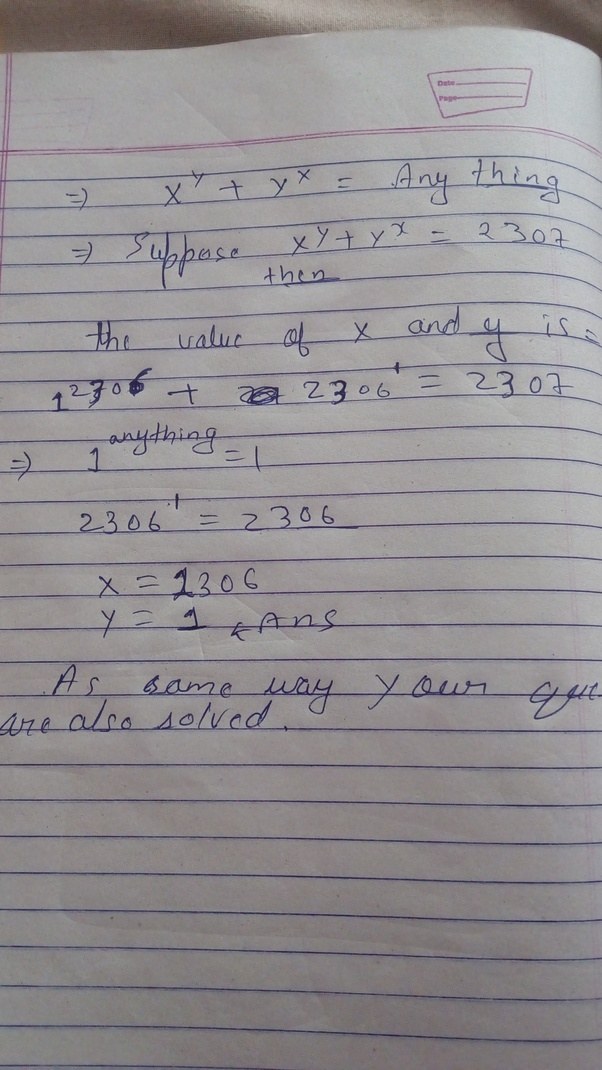 Date
Page
⇒ x^y + y^x = Any thing
⇒ Suppose x^y + y^x = 2307
then
the value of x and y is =
1^2306 + 2306^1 = 2307
⇒ 1^anything = 1
2306^1 = 2306
x = 2306
y = 1 ← Ans
As same way your que
are also solved.